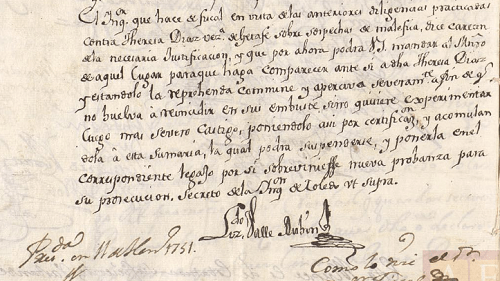 El Inqor. que hace de fiscal en vista de las anteriores diligencias practicadas
contra Theresa Diaz veza. de Getafe sobre sospechas de maleficio, dice carecen
de la necesaria Justificacion, y que por ahora podra V.S. mandar al
de aquel Lugar para que haga comparecer ante si a dha Theresa Diaz
y estandolo la reprehenda Commine y aperciva severamte. a fin de qe.
no buelva a reincidir en sus embustes, sino quiiere experimentar
luego mas severo Castigo, poniendolo asi por certificazon. y acomulan
dola à esta Sumaria, la qual podra suspenderse, y ponerla en el
correspondiente legajo por si sobreviniesse nueva probanza para
su prosecucion. Secreto de la Inqon. de Toledo Vt supra.
Ldo. Valle Rubin
1751.
Como lo dice el